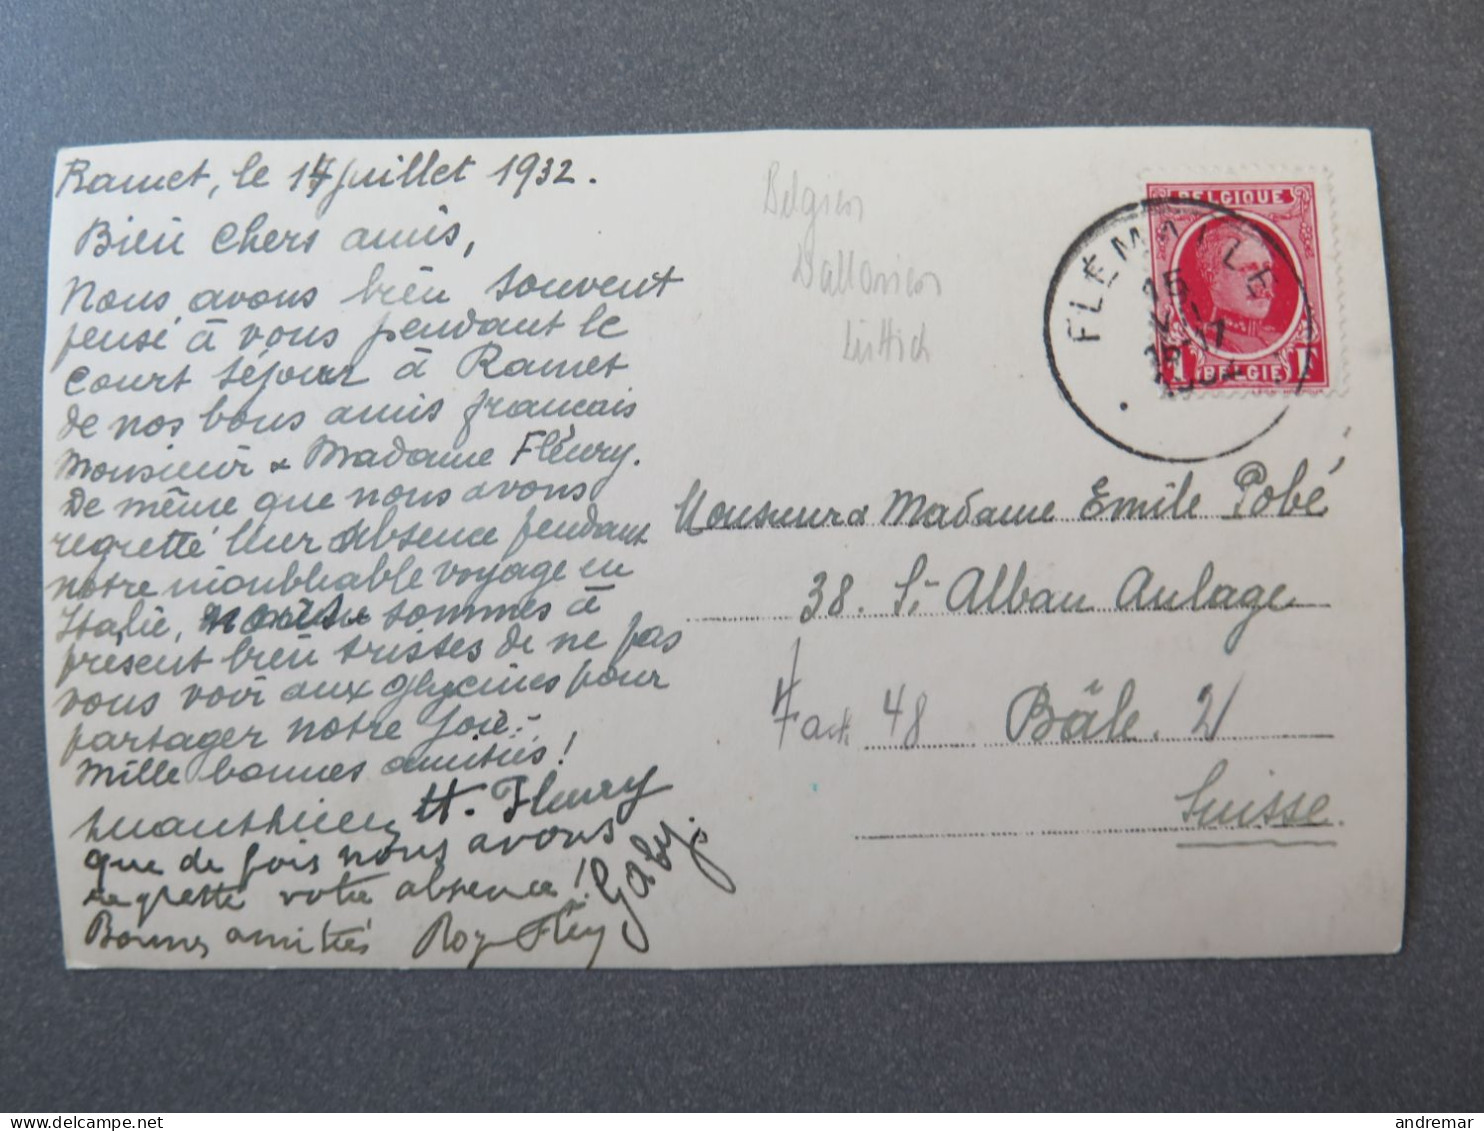 Ramet, le 14 juillet 1932.
Bien chers amis,
Nous avons bien souvent
pensé à vous pendant le
court séjour à Ramet
de nos bons amis français
Monsieur & Madame Fleury.
De même que nous avons
regretté leur absence pendant
notre inoubliable voyage en
Italie, nous sommes à
présent bien tristes de ne pas
vous voir aux glycines pour
partager notre joie.-
Mille bonnes amitiés!
H. Fleury
que de fois nous avons
regretté votre absence! Gaby.
Bonnes amitiés
Belgien
Wallonien
Lüttich
BELGIQUE
1 F
BELGIE
FLÉMALLE
15
17
1932
Monsieur & Madame Emile Pobé
38. St Alban Anlage
48 Bâle. 2
Suisse.
andremar
delcampe.net